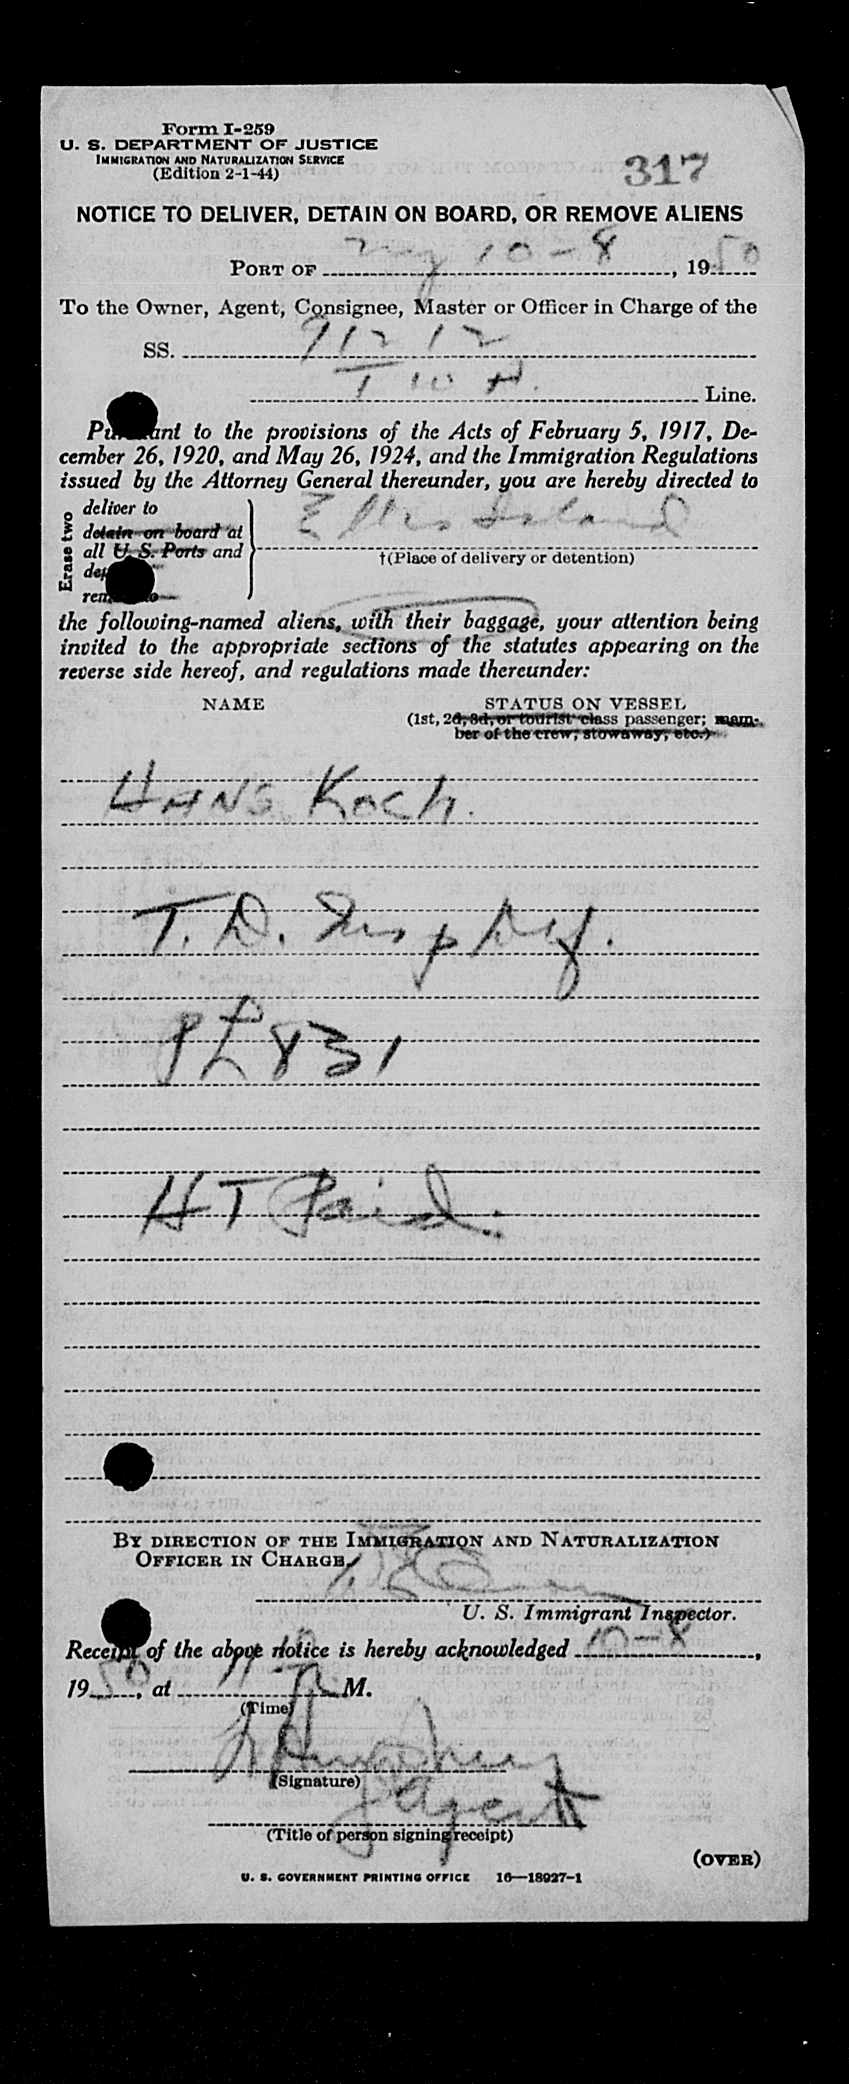 Form I-259
U. S. DEPARTMENT OF JUSTICE
IMMIGRATION AND NATURALIZATION SERVICE
(Edition 2-1-44)
317
NOTICE TO DELIVER, DETAIN ON BOARD, OR REMOVE ALIENS
PORT OF NY 10-8, 1950
To the Owner, Agent, Consignee, Master or Officer in Charge of the
SS. 912 12
Line.
Pursuant to the provisions of the Acts of February 5, 1917, De-
cember 26, 1920, and May 26, 1924, and the Immigration Regulations
issued by the Attorney General thereunder, you are hereby directed to
Erase two
deliver to
detain on board at
all U. S. Ports and
Ellis Island
†(Place of delivery or detention)
the following-named aliens, with their baggage, your attention being
invited to the appropriate sections of the statutes appearing on the
reverse side hereof, and regulations made thereunder:
NAME STATUS ON VESSEL
(1st, 2d, 3d, or tourist class passenger; mem-
ber of the crew; stowaway; etc.)
HANS Koch.
T. D. Insp
PL 831
HT Paid.
BY DIRECTION OF THE IMMIGRATION AND NATURALIZATION
OFFICER IN CHARGE.
U. S. Immigrant Inspector.
Receipt of the above notice is hereby acknowledged 10-8,
1950, at M.
(Time)
(Signature)
Agent
(Title of person signing receipt)
(OVER)
U. S. GOVERNMENT PRINTING OFFICE 16—18927-1